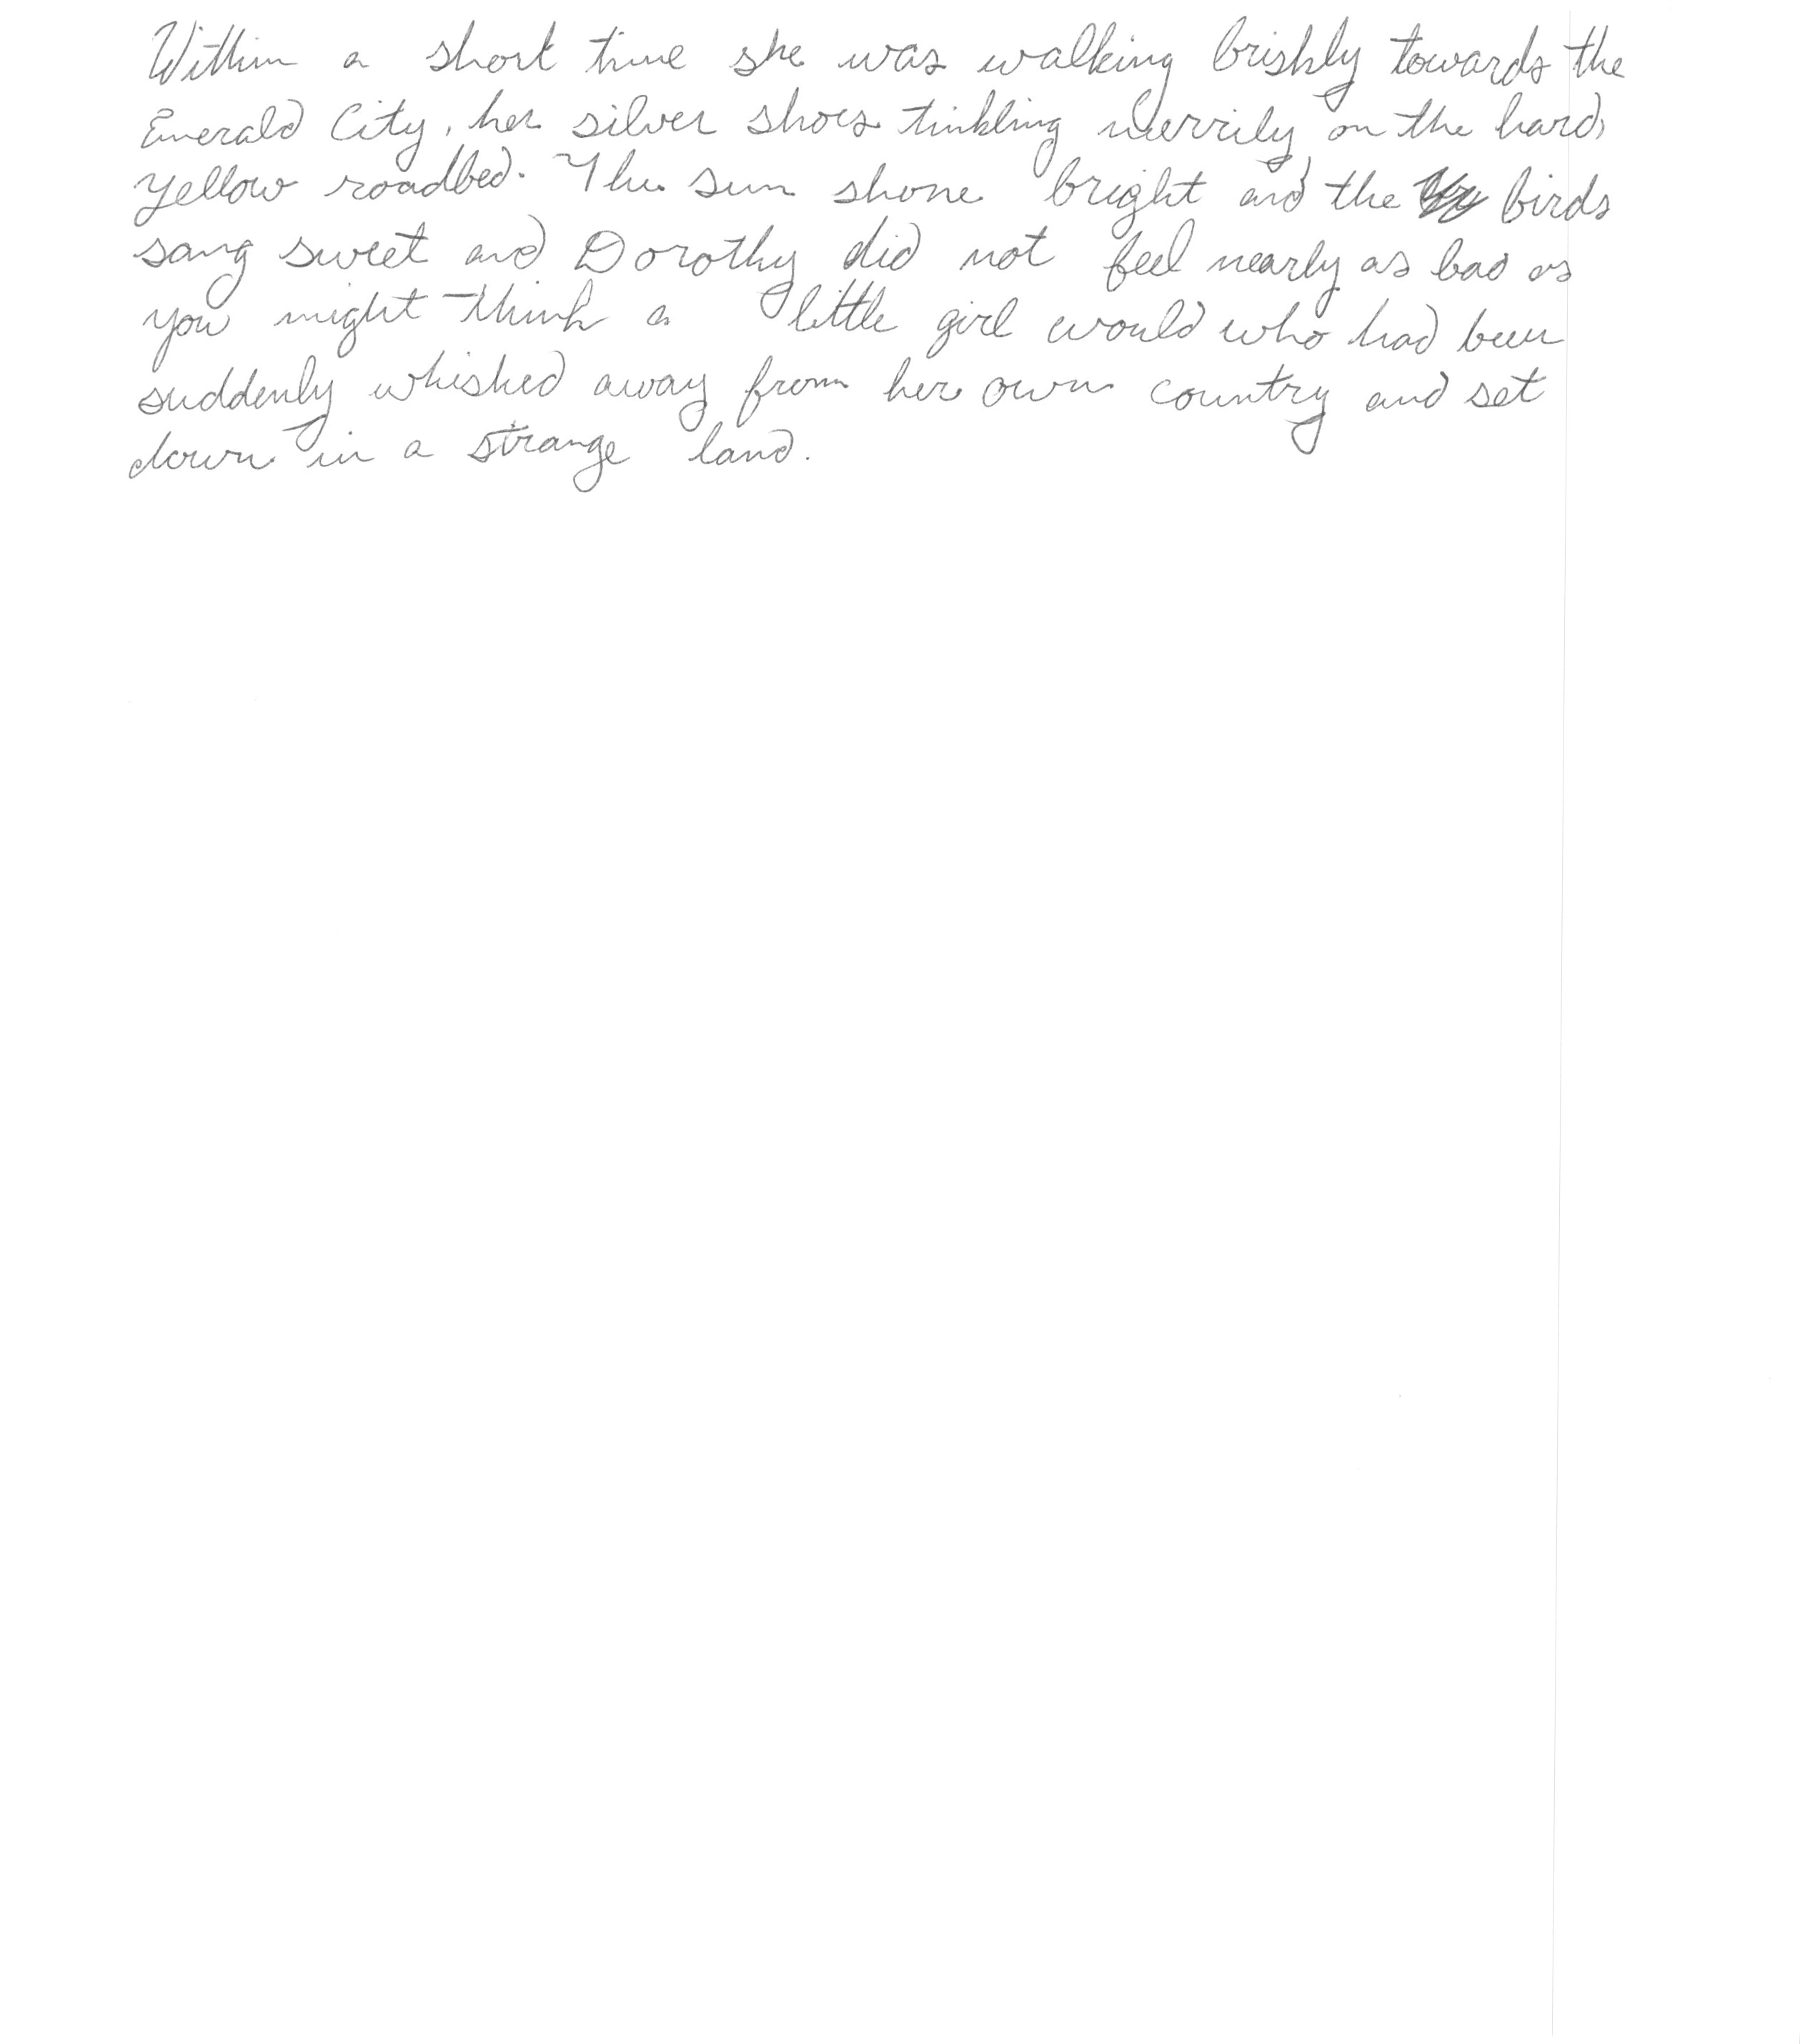 Within a short time she was walking briskly towards the
Emerald City, her silver shoes tinkling merrily on the hard,
yellow roadbed. The sun shone bright and the birds
sang sweet and Dorothy did not feel nearly as bad as
you might think a little girl would who had been
suddenly whisked away from her own country and set
down in a strange land.